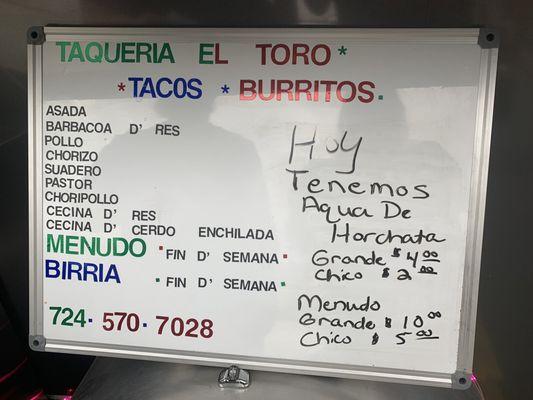 TAQUERIA EL TORO*
*TACOS *BURRITOS.
ASADA
BARBACOA D' RES
POLLO
CHORIZO
SUADERO
PASTOR
CHORIPOLLO
CECINA D' RES
CECINA D' CERDO ENCHILADA
MENUDO *FIN D' SEMANA*
BIRRIA *FIN D' SEMANA*
724. 570. 7028
Hoy
Tenemos
Aqua De
Horchata
Grande $ 4.00
Chico $ 2.00
Menudo
Grande $ 10.00
Chico $ 5.00